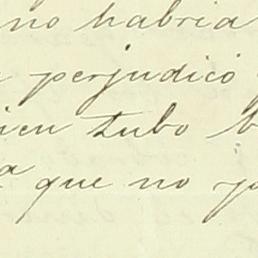 no habria
perjudicó
tubo
que no